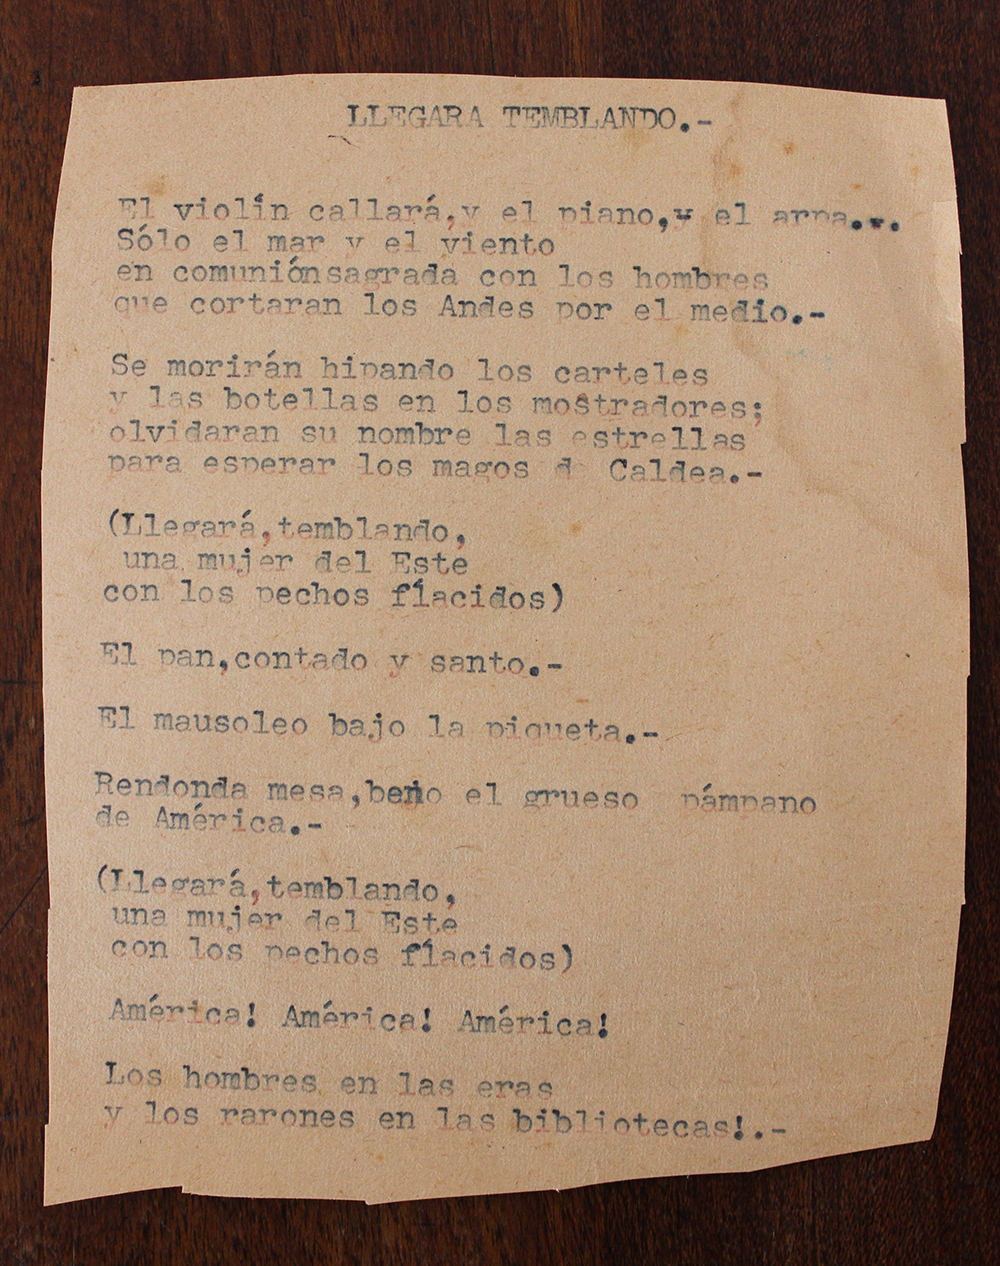 LLEGARA TEMBLANDO.-
El violín callará,y el piano,y el arpa...
Sólo el mar y el viento
en comuniónsagrada con los hombres
que cortaran los Andes por el medio.-
Se morirán hipando los carteles
y las botellas en los mostradores;
olvidaran su nombre las estrellas
para esperar los magos de Caldea.-
(Llegará,temblando,
una mujer del Este
con los pechos flácidos)
El pan,contado y santo.-
El mausoleo bajo la piqueta.-
Rendonda mesa, el grueso pámpano
de América.-
(Llegará,temblando,
una mujer del Este
con los pechos flácidos)
América! América! América!
Los hombres en las eras
y los rarones en las bibliotecas!.-